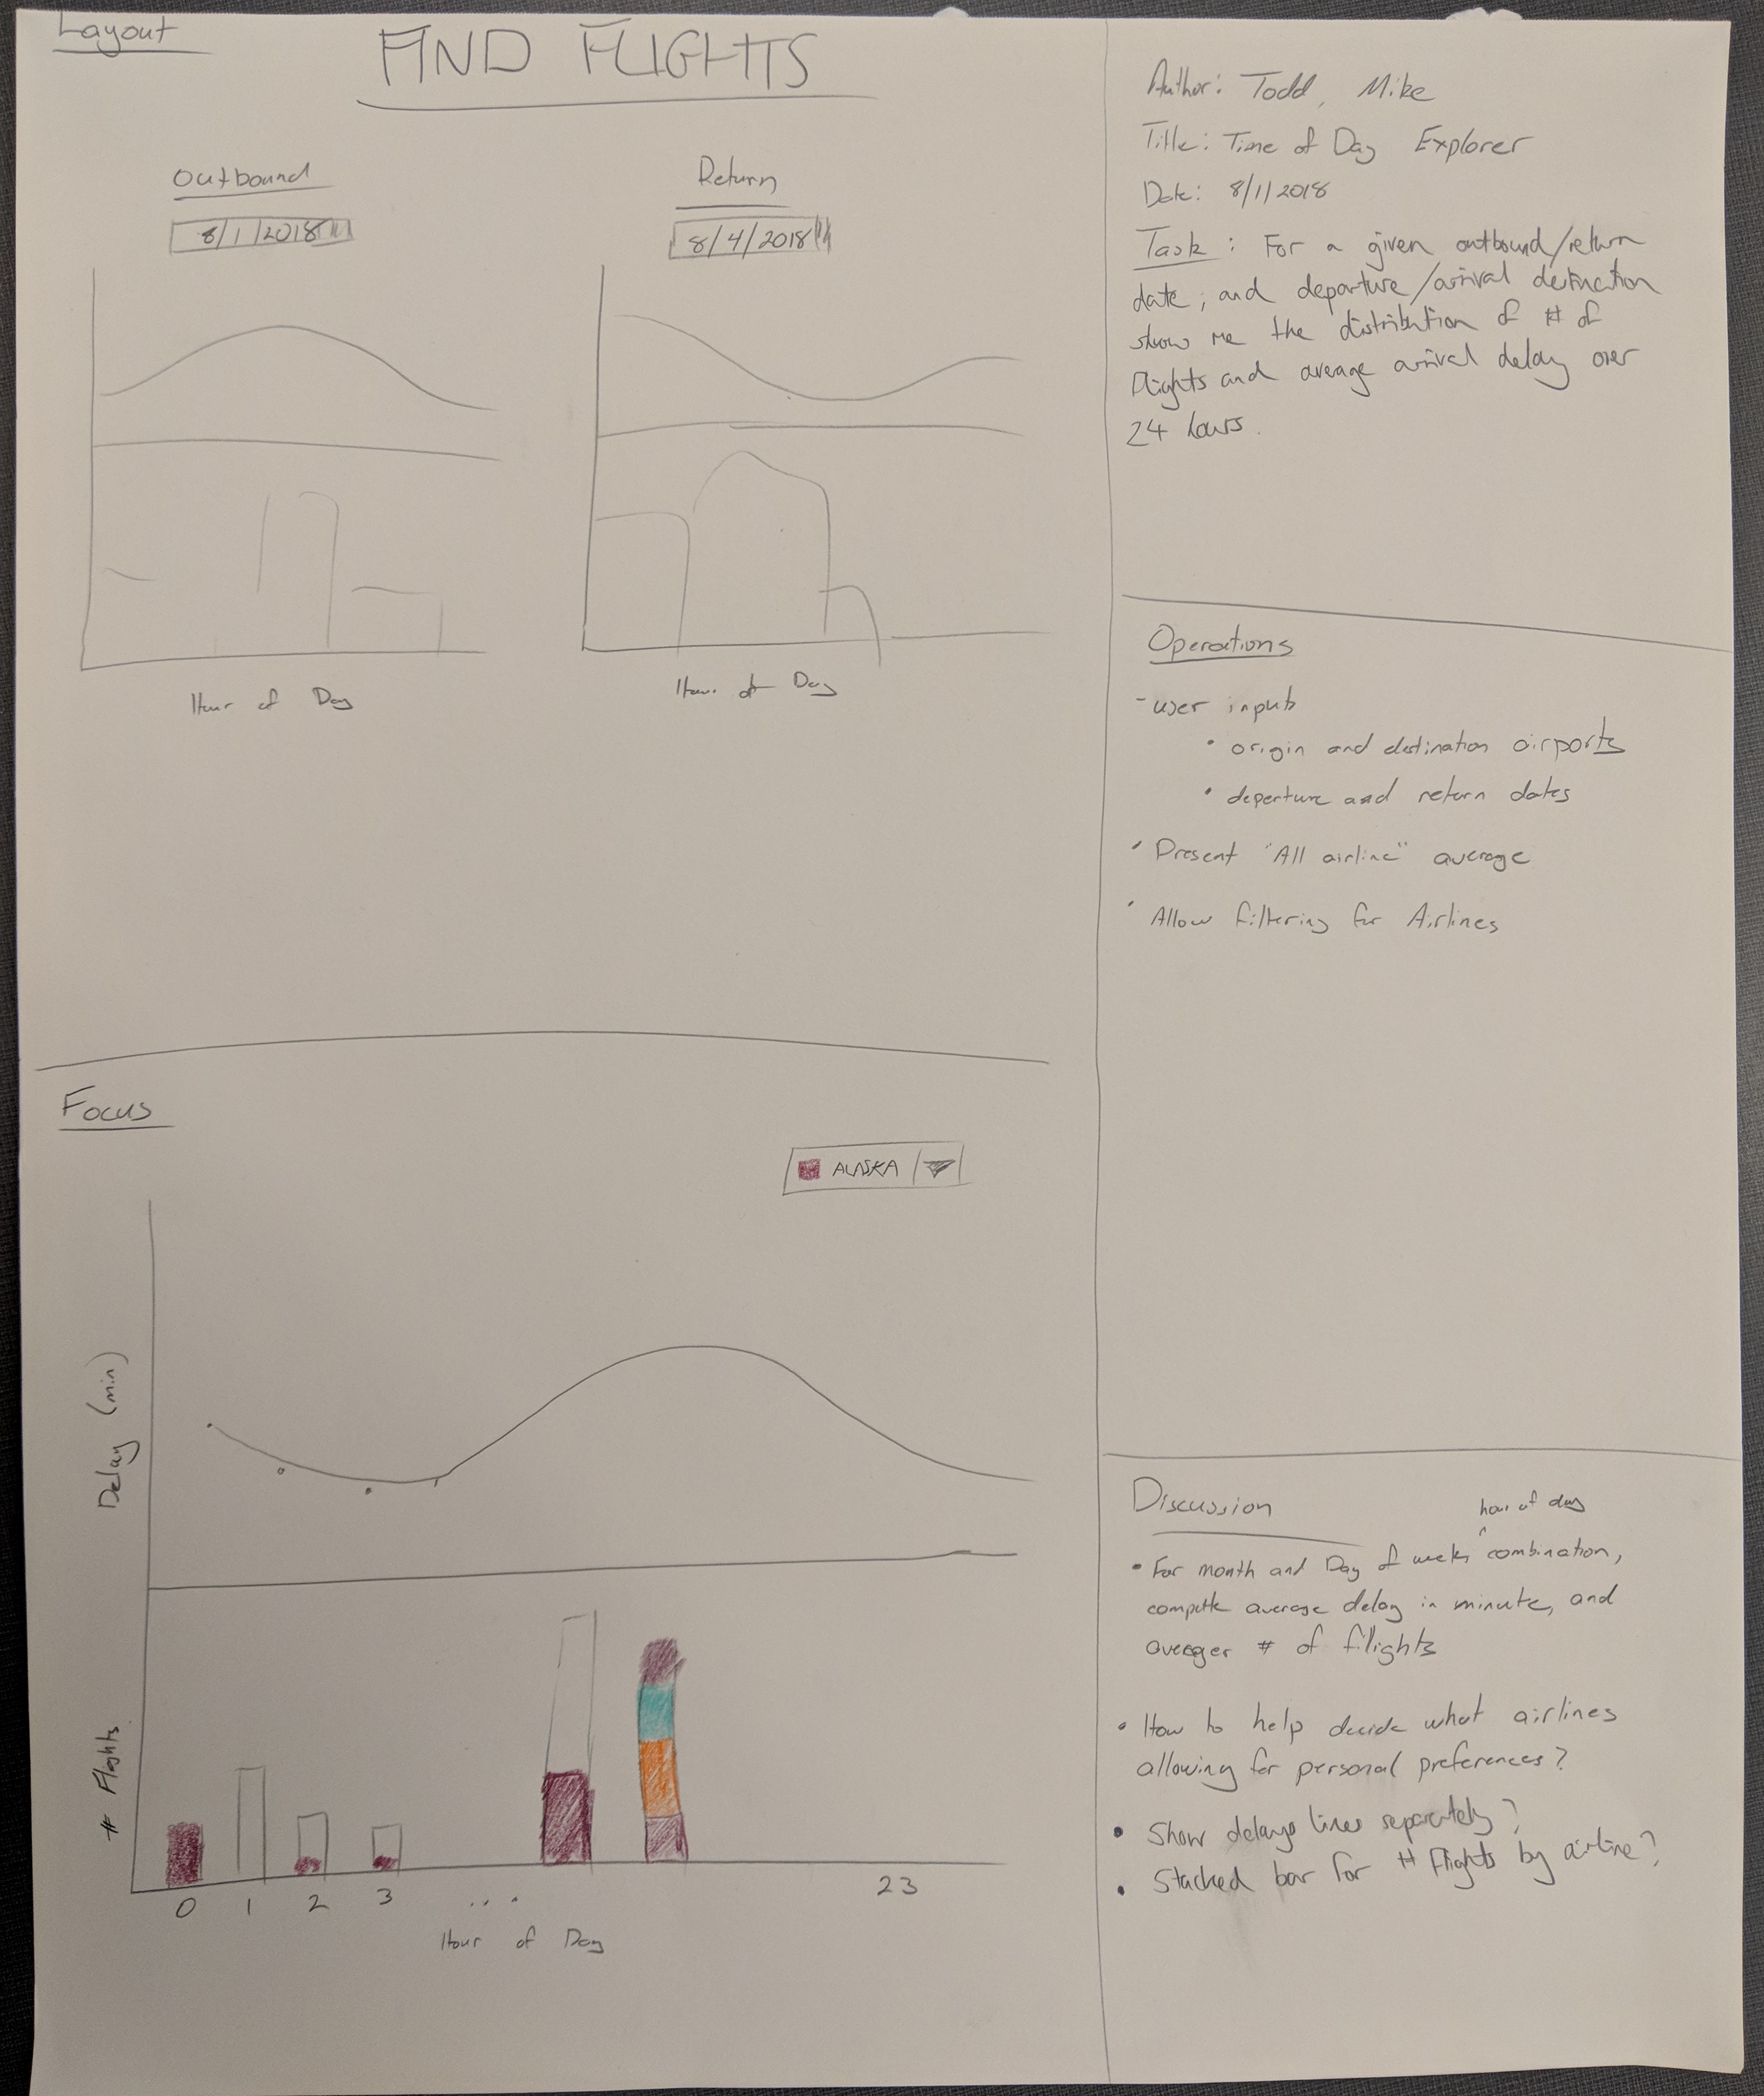 Layout
FIND FLIGHTS
Outbound
8/1/2018
Return
8/4/2018
Hour of Day
Hour of Day
Focus
ALASKA
Delay (min)
# Flights
0 1 2 3 ... 23
Hour of Day
Author: Todd, Mike
Title: Time of Day Explorer
Date: 8/1/2018
Task: For a given outbound/return
date, and departure/arrival destination
show me the distribution of # of
flights and average arrival delay over
24 hours.
Operations
- user inputs
• origin and destination airports
• departure and return dates
• Present "All airline" average
• Allow filtering for Airlines
Discussion
hour of day
• For month and Day of week, ^ combination,
compute average delay in minute, and
averager # of fllights
• How to help decide what airlines
allowing for personal preferences?
• Show delays lines separately?
• Stacked bar for # flights by airline?